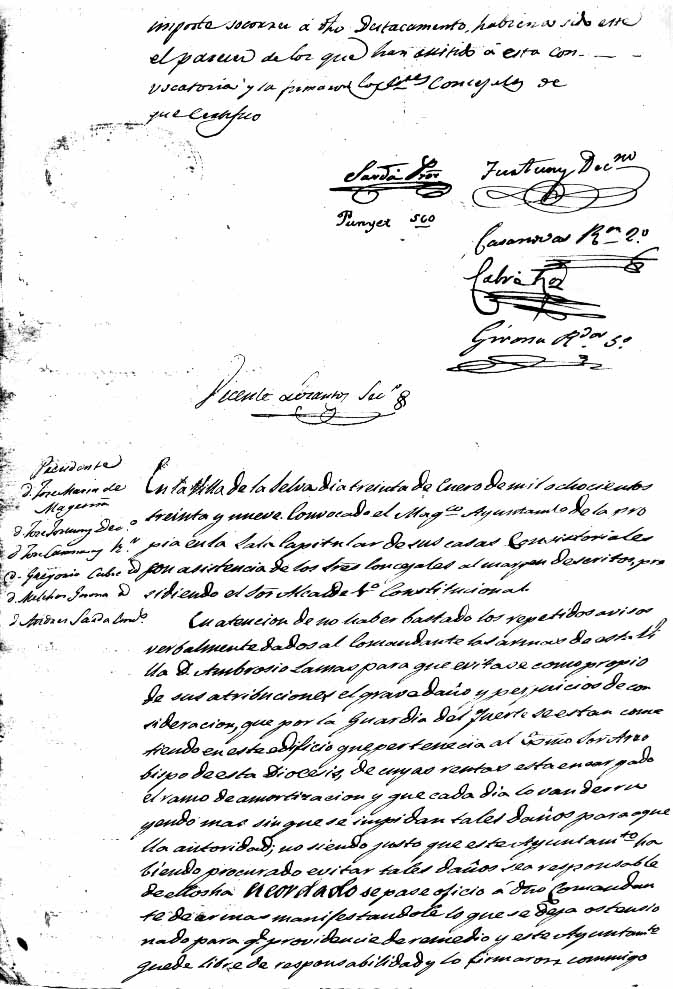 importe socorrer á dho Destacamento, habiendo sido este
el parecer de los que han asistido á esta con-
vocatoria y la firmaron los Sres Concejales de
que Certifico
Sardá Pror
Fortuny Decno
Punyet
Casanovas Rn 2.º
Cabré Ror
Girona Rdor 5.º
Vicente Secrº
Presidente
d. Jose Maria de
Magriñá
d. Jose Fortuny Decº
d. Jose Casanovas Rn
d. Gregorio Cabré id
d. Melchor Girona id
d. Andres Sarda
En la Villa de la Selva dia treinta de Enero de mil ochocientos
treinta y nueve. Convocado el Magco Ayuntamto de la pro
pia en la Sala Capitular de sus casas Consistoriales
con asistencia de los Sres Concejales al margen descritos, pre
sidiendo el Sor Alcalde 1º Constitucional.
En atencion de no haber bastado los repetidos avisos
verbalmente dados al Comandante las armas de esta Vi
lla D. Ambrosio Lamas para que evitase como propio
de sus atribuciones el grave daño y perjuicios de con
sideracion, que por la Guardia del Fuerte se estan come
tiendo en este edificio que pertenecia al Escmo Sor Arzo
bispo de esta Diocesis, de cuyas rentas esta encargado
el ramo de amortizacion y que cada dia lo van derru
yendo mas sin que se impidan tales daños para aque
lla autoridad; no siendo justo que este Ayuntamto ha
biendo procurado evitar tales daños sea responsable
de ellos ha acordado se pase oficio á dho Comandan
te de armas manifestandole lo que se deja ostensio
nado para qe providencie de remedio y este Ayuntamte
quede libre de responsabilidad y lo firmaron conmigo